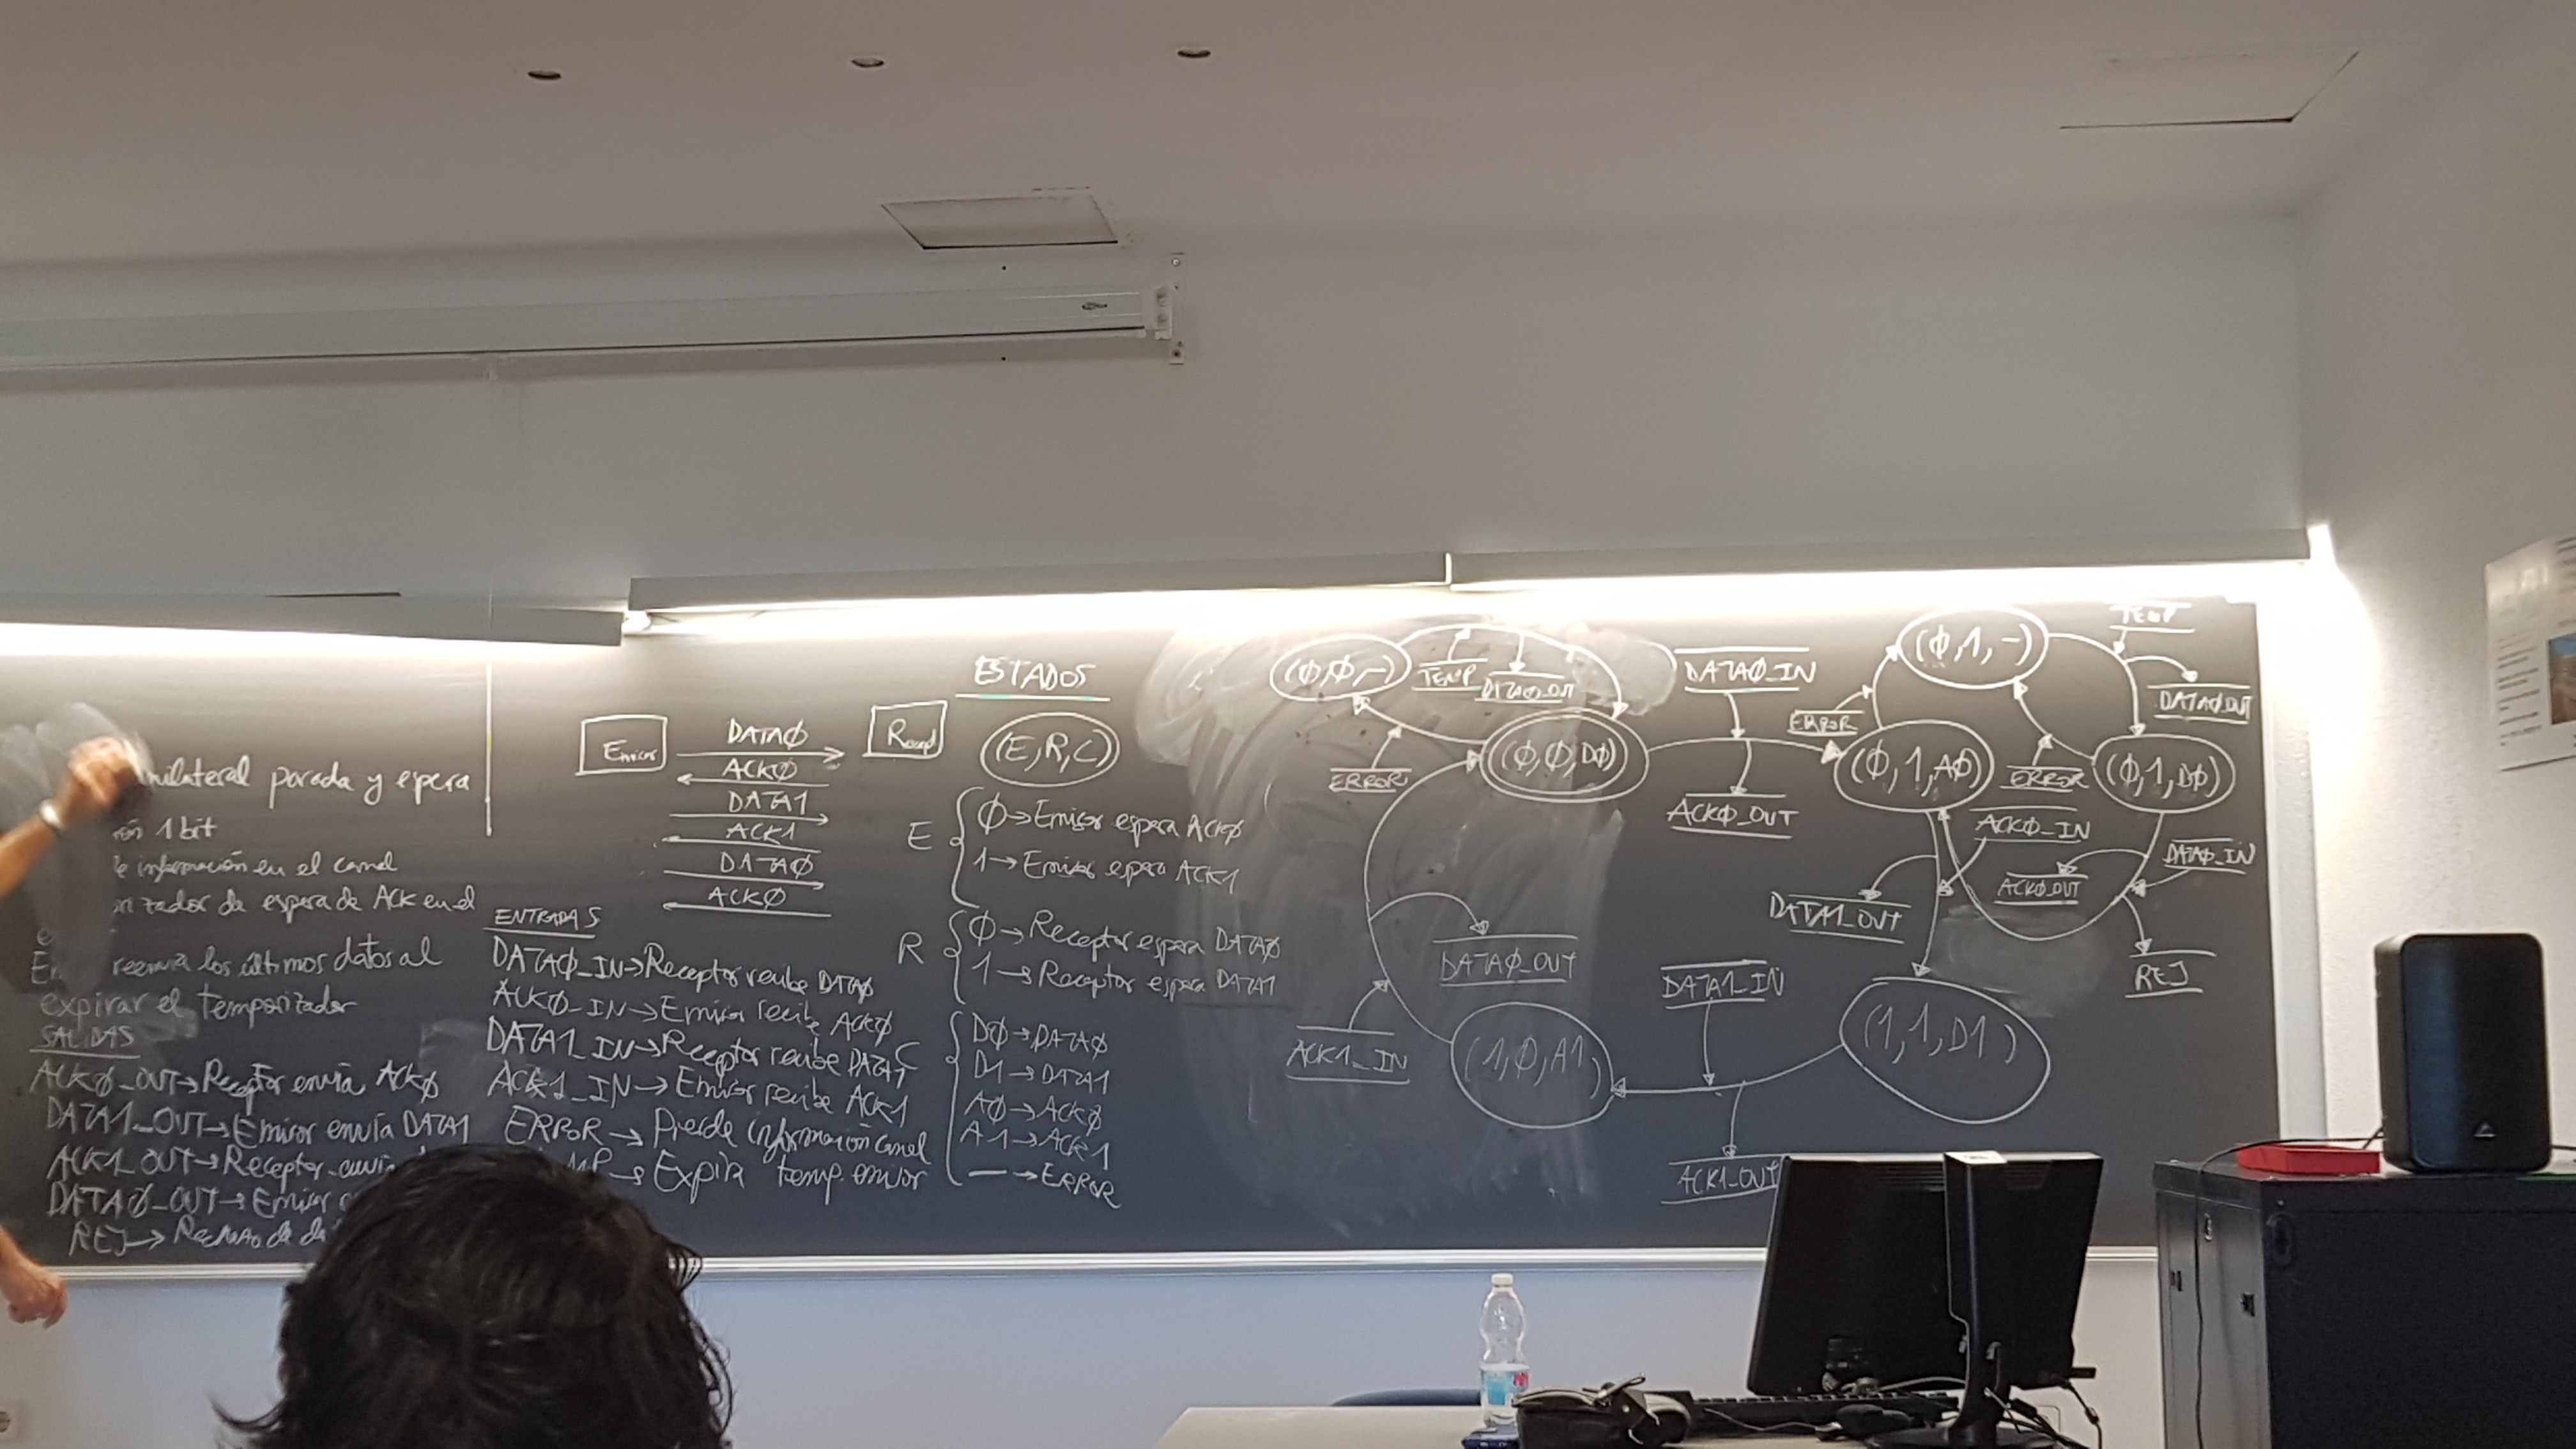 unilateral parada y espera
1 bit
información en el canal
de espera de Ack en el
reenvía los últimos datos al
expirar el temporizador
SALIDAS
ACKφ_OUT→Receptor envía ACKφ
DATA1_OUT→Emisor envía DATA1
ACK1_OUT→Receptor
DATAφ_OUT→Emisor
REJ→Rechazo de
Emisor
DATAφ
ACKφ
DATA1
ACK1
DATAφ
ACKφ
Recept
ENTRADAS
DATAφ_IN→Receptor recibe DATAφ
ACKφ_IN→Emisor recibe ACKφ
DATA1_IN→Receptor recibe DATA1
ACK1_IN→Emisor recibe ACK1
ERROR→Pierde información canal
→Expira temp. emisor
ESTADOS
(E,R,C)
E
φ→Emisor espera ACKφ
1→Emisor espera ACK1
R
φ→Receptor espera DATAφ
1→Receptor espera DATA1
C
Dφ→DATAφ
D1→DATA1
Aφ→ACKφ
A1→ACK1
—→ERROR
(φ,φ,-)
TEMP
DATAφ_OUT
ERROR
(φ,φ,Dφ)
DATAφ_IN
ACKφ_OUT
ERROR
(φ,1,-)
TEMP
DATAφ_OUT
(φ,1,Aφ)
ERROR
(φ,1,Dφ)
ACKφ_IN
DATAφ_IN
ACKφ_OUT
DATA1_OUT
REJ
DATAφ_OUT
DATA1_IN
ACK1_IN
(1,φ,A1)
(1,1,D1)
ACK1_OUT